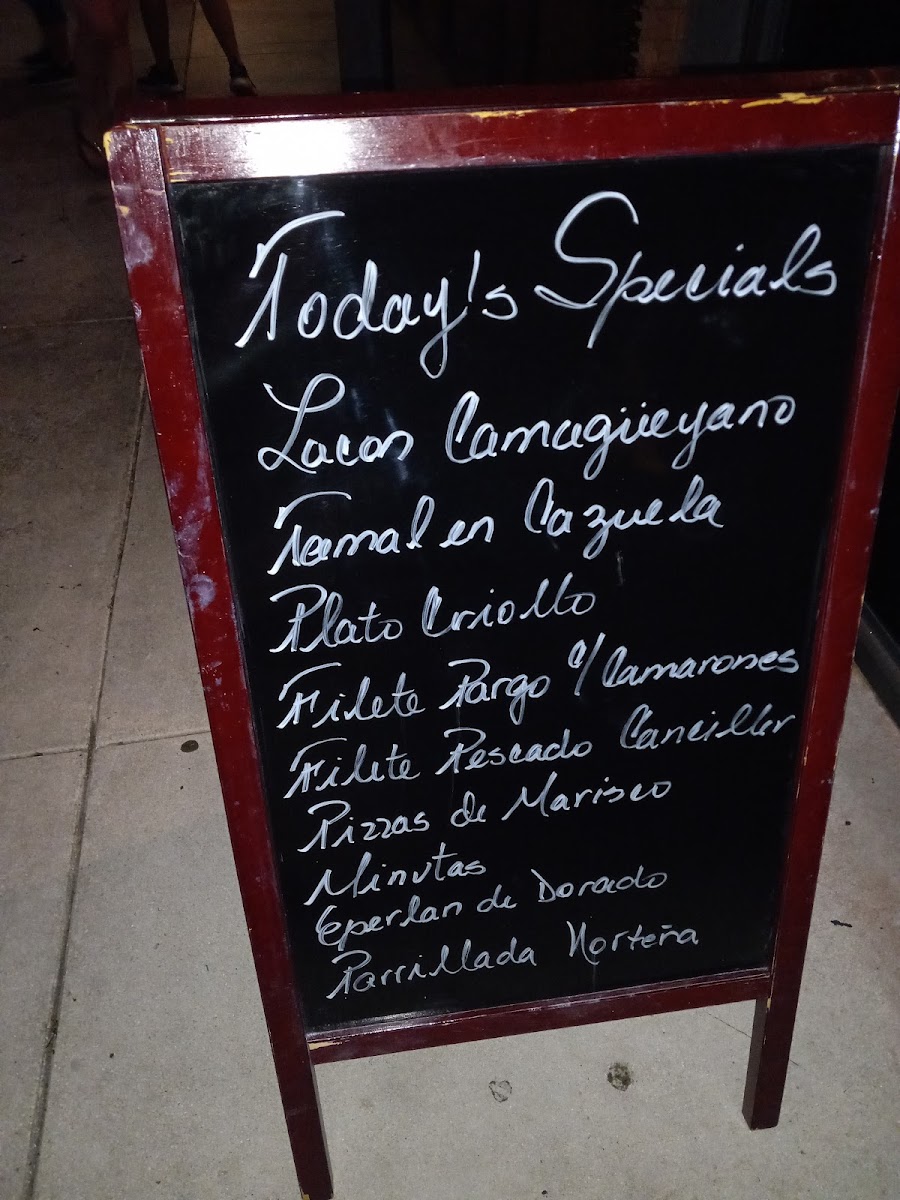 Today's Specials
Lacon Camagüeyano
Tamal en Cazuela
Plato Criollo
Filete Pargo c/Camarones
Filete Pescado Canciller
Pizzas de Marisco
Minutas
Eperlan de Dorado
Parrillada Norteña